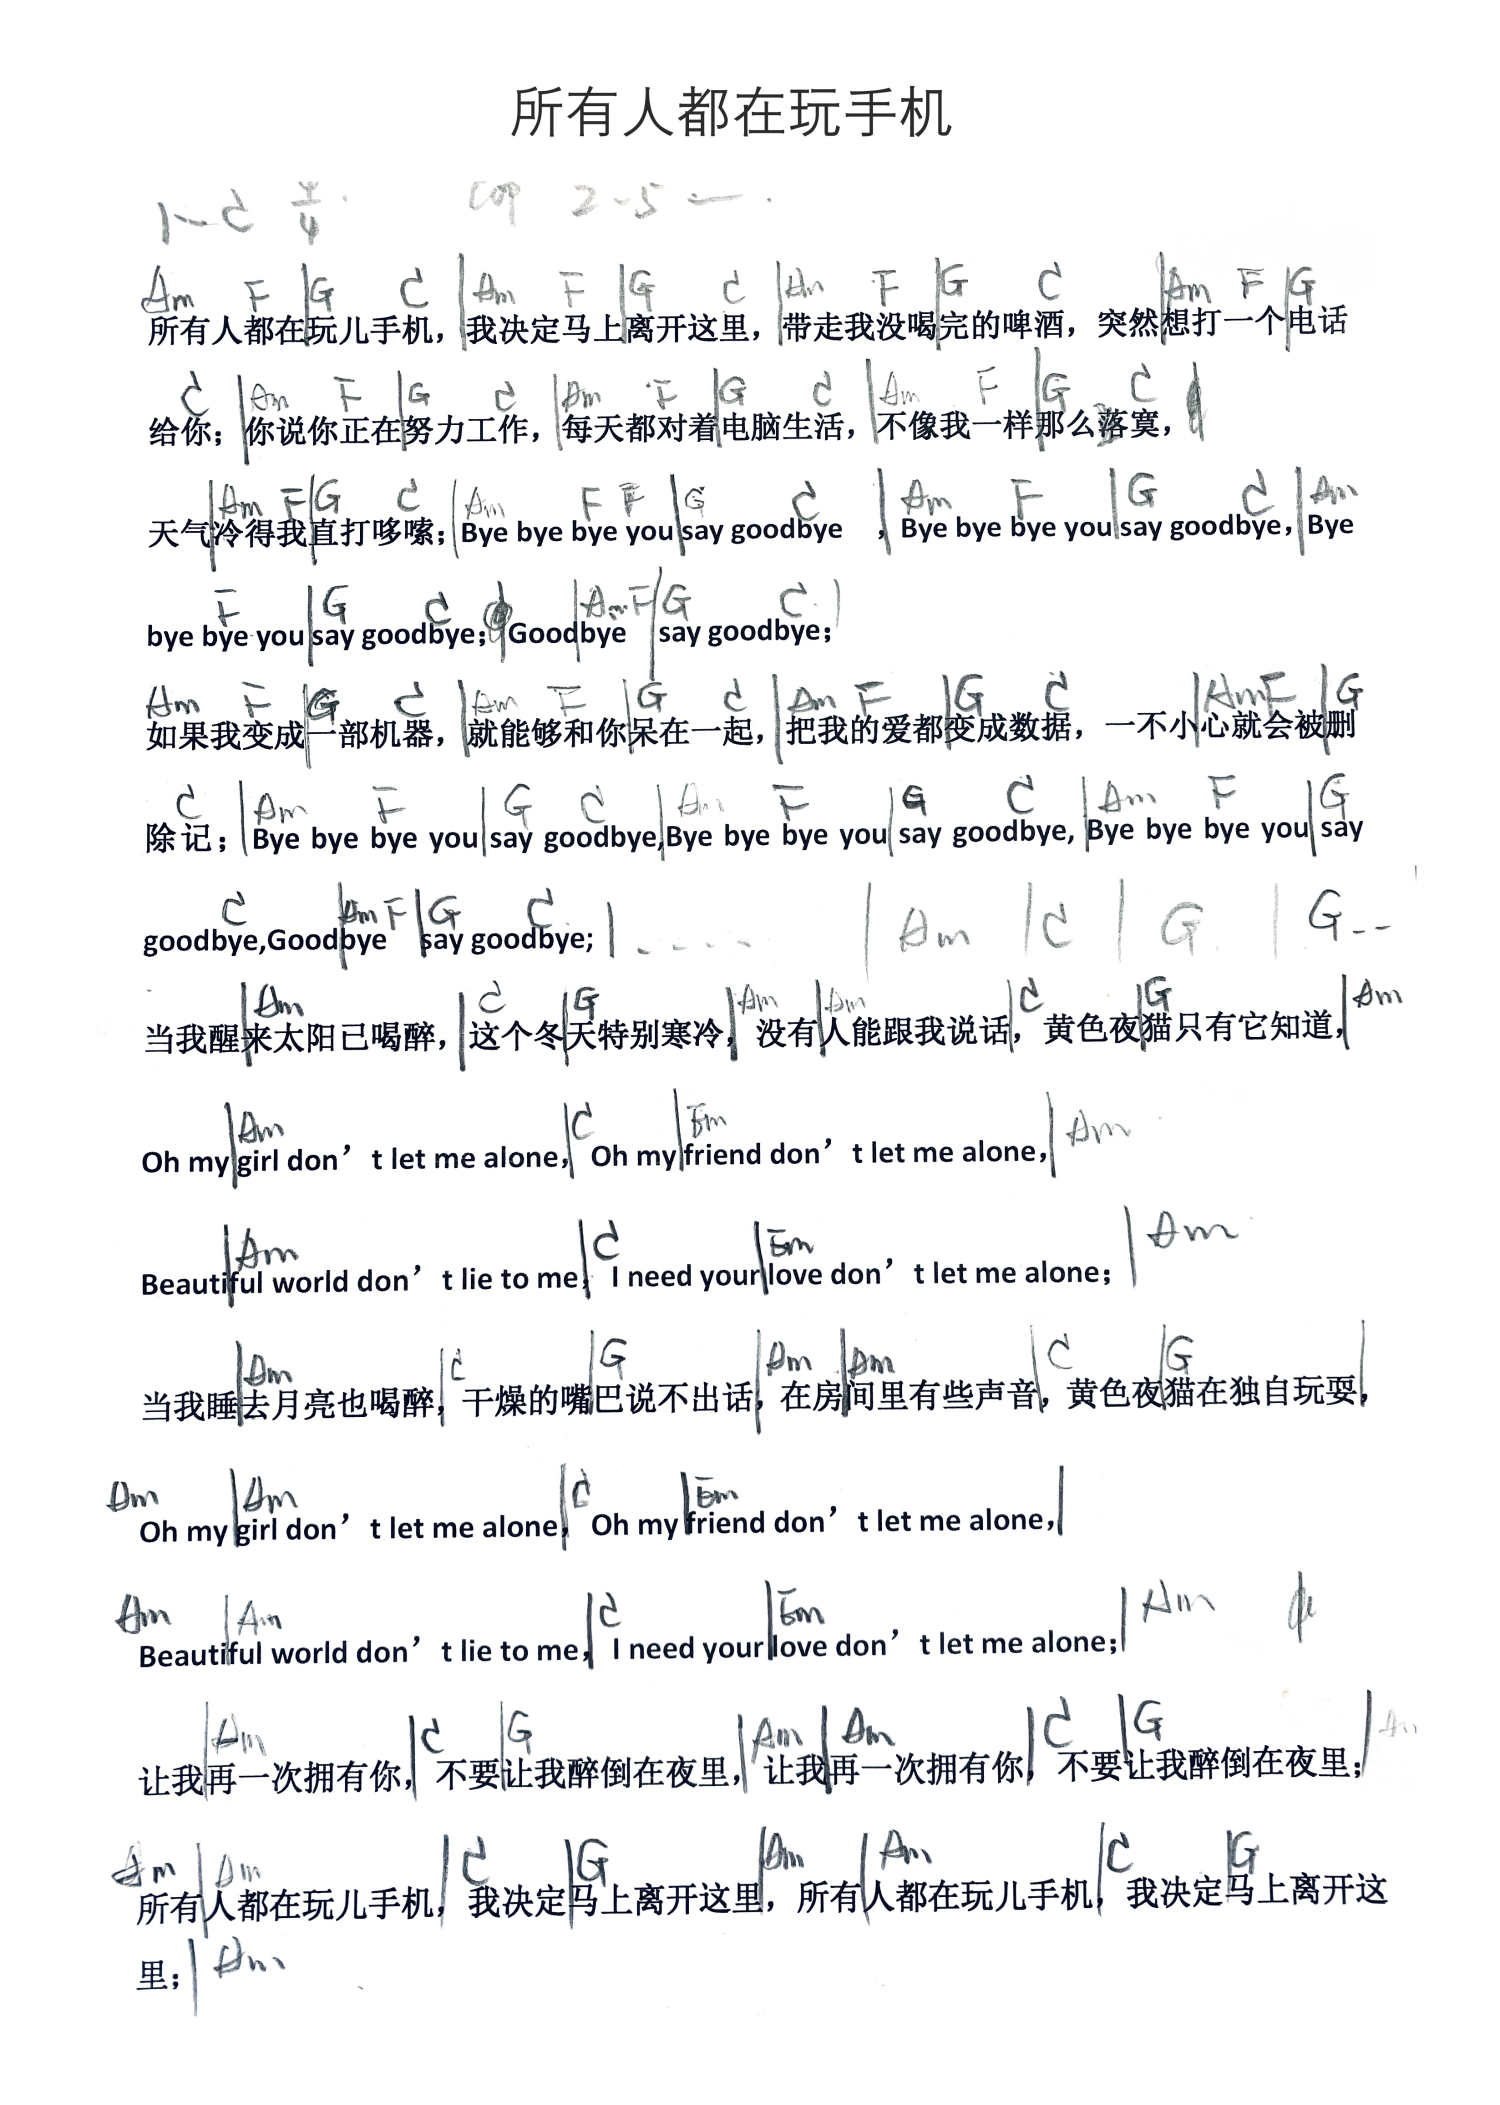 所有人都在玩手机
1=C 4/4 cap 2-5
Am F | G C | Am F | G C | Am F | G C | Am F | G
所有人都在玩儿手机，我决定马上离开这里，带走我没喝完的啤酒，突然想打一个电话
C | Am F | G C | Am F | G C | Am F | G C |
给你；你说你正在努力工作，每天都对着电脑生活，不像我一样那么落寞，
| Am F | G C | Am F F | G C | Am F | G C | Am
天气冷得我直打哆嗦；Bye bye bye you say goodbye ，Bye bye bye you say goodbye，Bye
F | G C | Am F | G C |
bye bye you say goodbye；Goodbye say goodbye；
Am F | G C | Am F | G C | Am F | G C | Am F | G
如果我变成一部机器，就能够和你呆在一起，把我的爱都变成数据，一不小心就会被删
C | Am F | G C | Am F | G C | Am F | G
除记；Bye bye bye you say goodbye,Bye bye bye you say goodbye, Bye bye bye you say
C | Am F | G C | - - - - | Am | C | G | G - -
goodbye,Goodbye say goodbye;
| Am | C | G | Am | Am | C | G | Am
当我醒来太阳已喝醉，这个冬天特别寒冷，没有人能跟我说话，黄色夜猫只有它知道，
| Am | C | Em | Am
Oh my girl don’t let me alone，Oh my friend don’t let me alone，
| Am | C | Em | Am
Beautiful world don’t lie to me，I need your love don’t let me alone；
| Am | C | G | Am | Am | C | G |
当我睡去月亮也喝醉，干燥的嘴巴说不出话，在房间里有些声音，黄色夜猫在独自玩耍，
Am | Am | C | Em |
Oh my girl don’t let me alone，Oh my friend don’t let me alone，
Am | Am | C | Em | Am
Beautiful world don’t lie to me，I need your love don’t let me alone；
| Am | C | G | Am | Am | C | G | Am
让我再一次拥有你，不要让我醉倒在夜里，让我再一次拥有你，不要让我醉倒在夜里；
Am | Am | C | G | Am | Am | C | G
所有人都在玩儿手机，我决定马上离开这里，所有人都在玩儿手机，我决定马上离开这
里；| Am